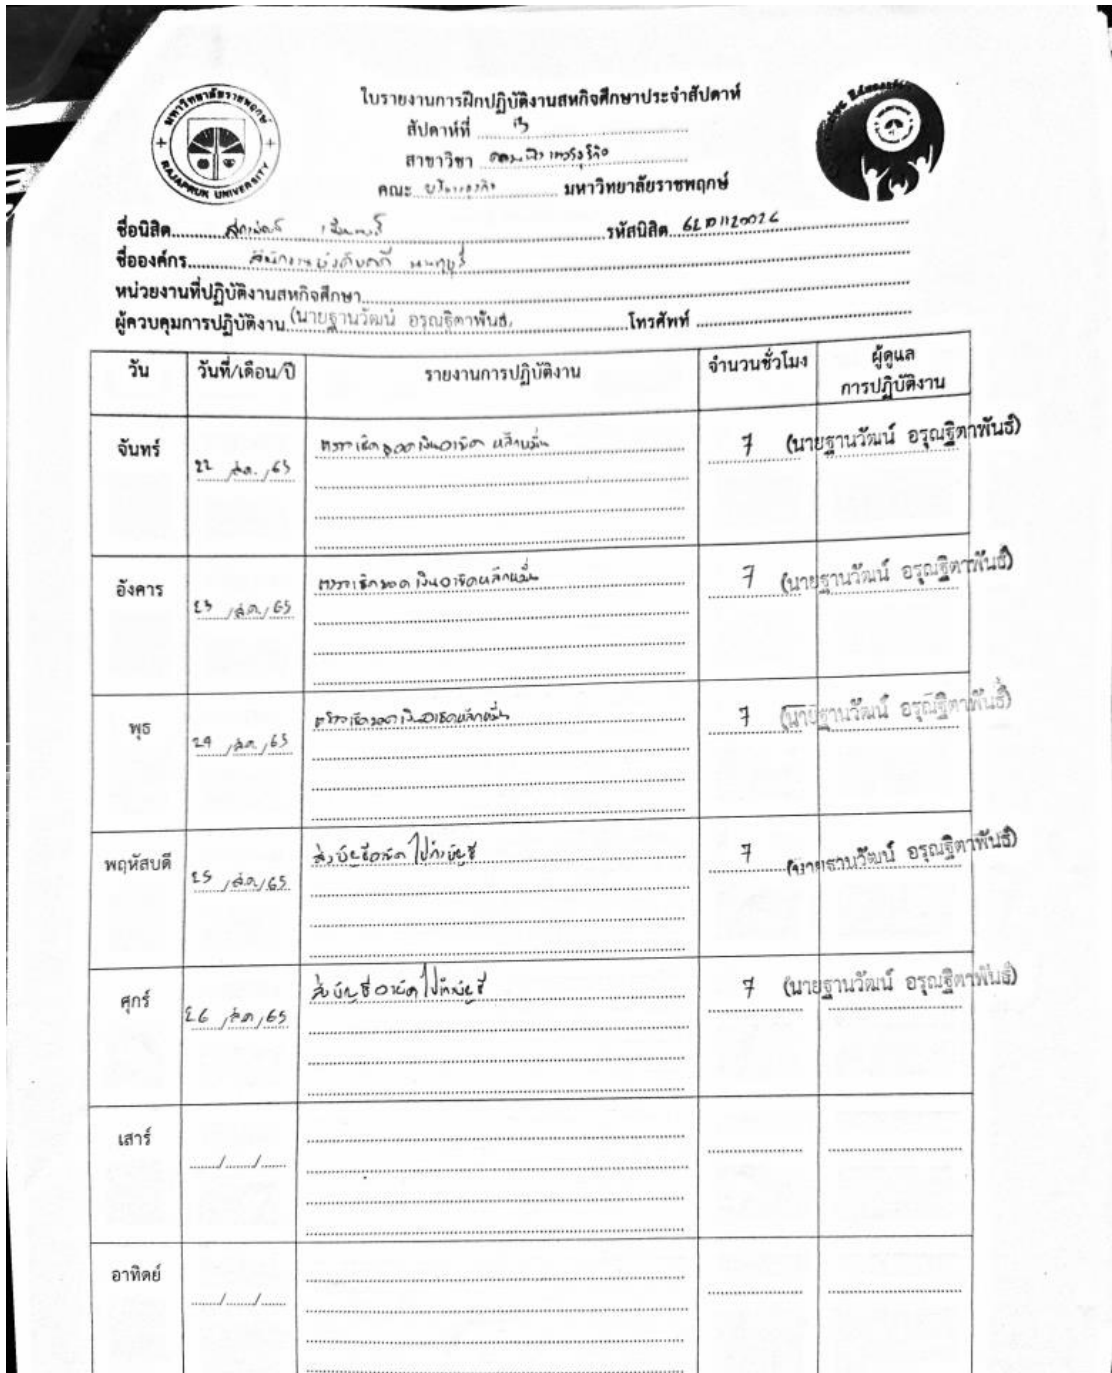 มหาวิทยาลัยราชพฤกษ์
RAJAPRUK UNIVERSITY
ใบรายงานการฝึกปฏิบัติงานสหกิจศึกษาประจำสัปดาห์
สัปดาห์ที่
สาขาวิชา คอมพิวเตอร์ธุรกิจ
คณะ บริหารธุรกิจ มหาวิทยาลัยราชพฤกษ์
ชื่อนิสิต รหัสนิสิต
ชื่อองค์กร สำนักงานบังคับคดี นนทบุรี
หน่วยงานที่ปฏิบัติงานสหกิจศึกษา
ผู้ควบคุมการปฏิบัติงาน (นายฐานวัฒน์ อรุณฐิตาพันธ์) โทรศัพท์
วัน วันที่/เดือน/ปี รายงานการปฏิบัติงาน จำนวนชั่วโมง ผู้ดูแล
การปฏิบัติงาน
จันทร์ 22 / ส.ค. / 65 ตรวจเช็คยอดเงินอายัด หลักหมื่น 7 (นายฐานวัฒน์ อรุณฐิตาพันธ์)
อังคาร 23 / ส.ค. / 65 ตรวจเช็คยอดเงินอายัดหลักหมื่น 7 (นายฐานวัฒน์ อรุณฐิตาพันธ์)
พุธ 24 / ส.ค. / 65 ตรวจเช็คยอดเงินอายัดหลักหมื่น 7 (นายฐานวัฒน์ อรุณฐิตาพันธ์)
พฤหัสบดี 25 / ส.ค. / 65 ส่งบัญชีอายัด 7 (นายฐานวัฒน์ อรุณฐิตาพันธ์)
ศุกร์ 26 / ส.ค. / 65 ส่งบัญชีอายัด 7 (นายฐานวัฒน์ อรุณฐิตาพันธ์)
เสาร์
อาทิตย์